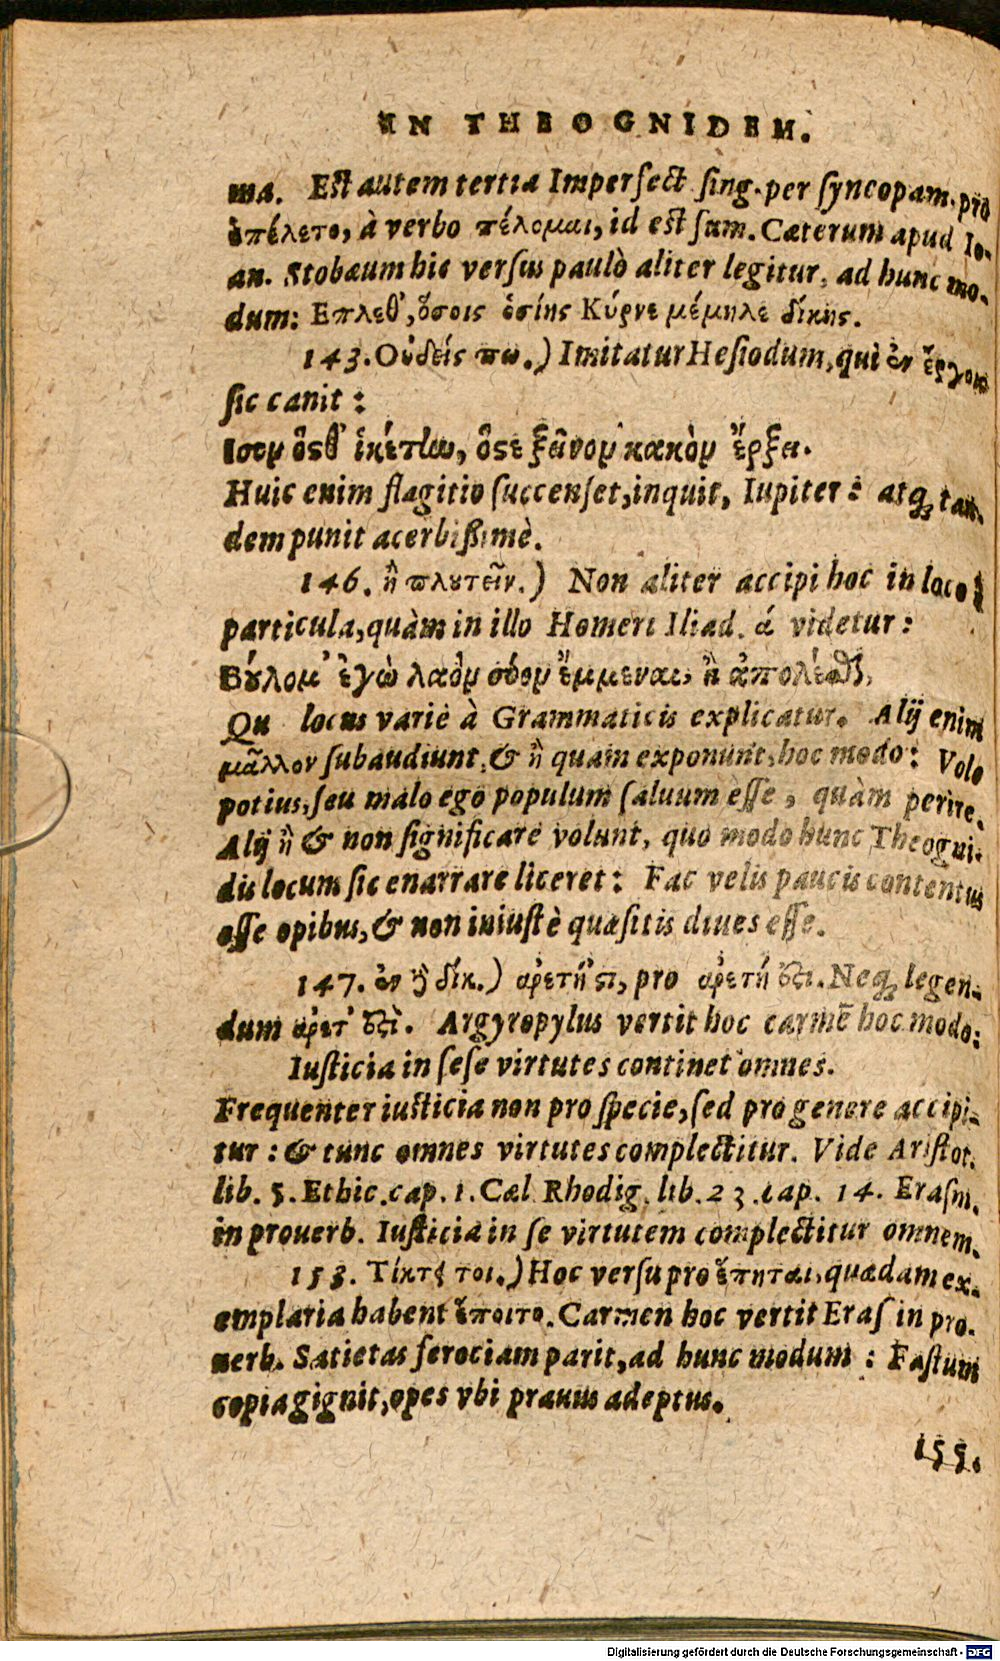 IN THEOGNIDEM.
ma. Est autem tertia Imperfect sing. per syncopam, pro
ἐπέλετο, à verbo πέλομαι, id est sum. Cæterum apud Io-
an. Stobæum hic versus paulò aliter legitur, ad hunc mo-
dum: Επλεθ᾽, ὅσοις ὁσίης Κύρνε μέμηλε δίκης.
143. Οὐδείς πω.) Imitatur Hesiodum, qui ἐν ἔργοις
sic canit:
Ισον ὅςθ᾽ ἱκέτην, ὅςε ξεῖνον κακὸν ἔρξει.
Huic enim flagitio succenset, inquit, Iupiter: atq; tan-
dem punit acerbissimè.
146. ἢ πλουτεῖν.) Non aliter accipi hoc in loco ἢ
particula, quàm in illo Homeri Iliad. ά videtur:
Βούλομ᾽ ἐγὼ λαὸν σόον ἔμμεναι, ἢ ἀπολέσθαι,
Qu locus varie à Grammaticis explicatur. Alij enim
μᾶλλον subaudiunt, & ἢ quam exponunt, hoc modo: Volo
potius, seu malo ego populum saluum esse, quàm perire.
Alij ἢ & non significare volunt, quo modo hunc Theogni-
dis locum sic enarrare liceret: Fac velis paucis contentus
esse opibus, & non iniustè quæsitis diues esse.
147. ἐν δὲ δίκ.) ἀρετή ᾿ςι, pro ἀρετή ἐςι. Neq; legen-
dum ἀρετ᾽ ἐςὶ. Argyropylus vertit hoc carmē hoc modo:
Iusticia in sese virtutes continet omnes.
Frequenter iusticia non pro specie, sed pro genere accipi-
tur: & tunc omnes virtutes complectitur. Vide Aristot.
lib. 5. Ethic. cap. 1. Cæl Rhodig. lib. 23. cap. 14. Erasm.
in prouerb. Iusticia in se virtutem complectitur omnem.
153. Τίκτει τοι.) Hoc versu pro ἕπηται, quædam ex-
emplaria habent ἕποιτο. Carmen hoc vertit Eras in pro-
uerb. Satietas ferociam parit, ad hunc modum: Fastum
copia gignit, opes vbi prauus adeptus.
155.
Digitalisierung gefördert durch die Deutsche Forschungsgemeinschaft - DFG